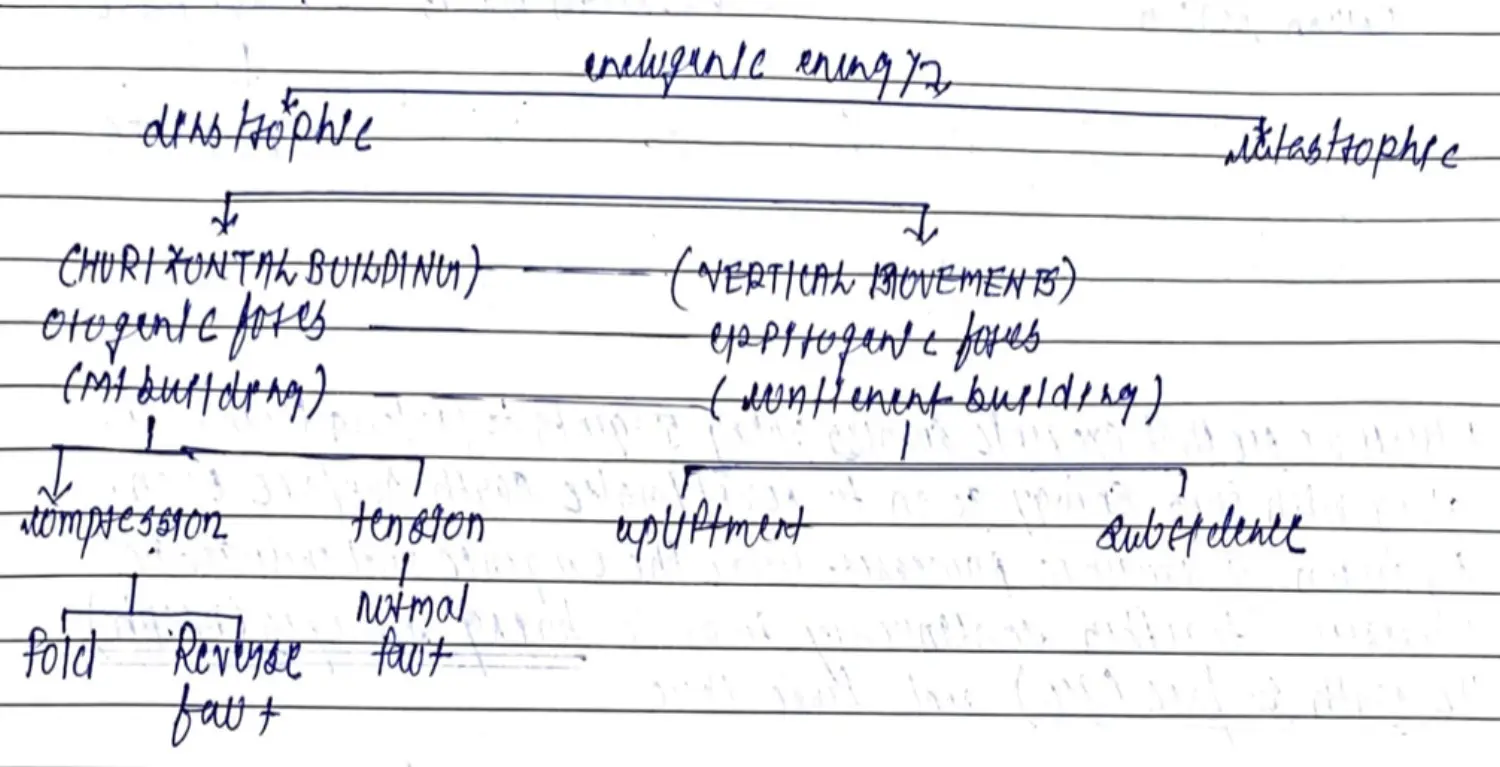 endogenic energy
diastrophic catastrophic
(HORIXONTAL BUILDING) (VERTICAL MOVEMENTS)
orogenic fores eppirogenic forces
(Mt building) (continent building)
compression tension upliftment subsidence
normal
fold Reverse faut
faut